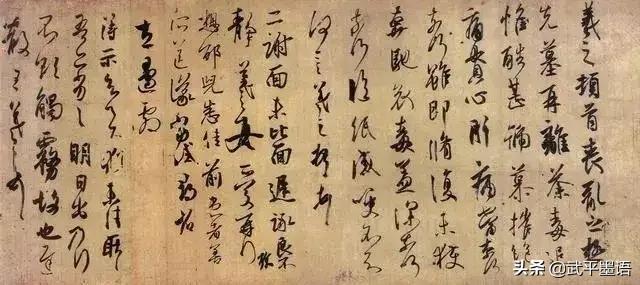 羲之頓首喪亂之極
先墓再離荼毒追
惟酷甚號慕摧絕
痛貫心肝痛當奈何
奈何雖即脩復未獲
奔馳哀毒益深奈何
奈何臨紙感哽不知
何言羲之頓首頓首
二謝面未比面遲詠良不
靜羲之女愛再拜
想邢兒悉佳前患者善
所送議當試尋省
左邊劇
得示知足下猶未佳耿耿
吾亦劣劣明日出乃行
不欲觸霧故也遲
散王羲之頓首
头条 @武平墨语